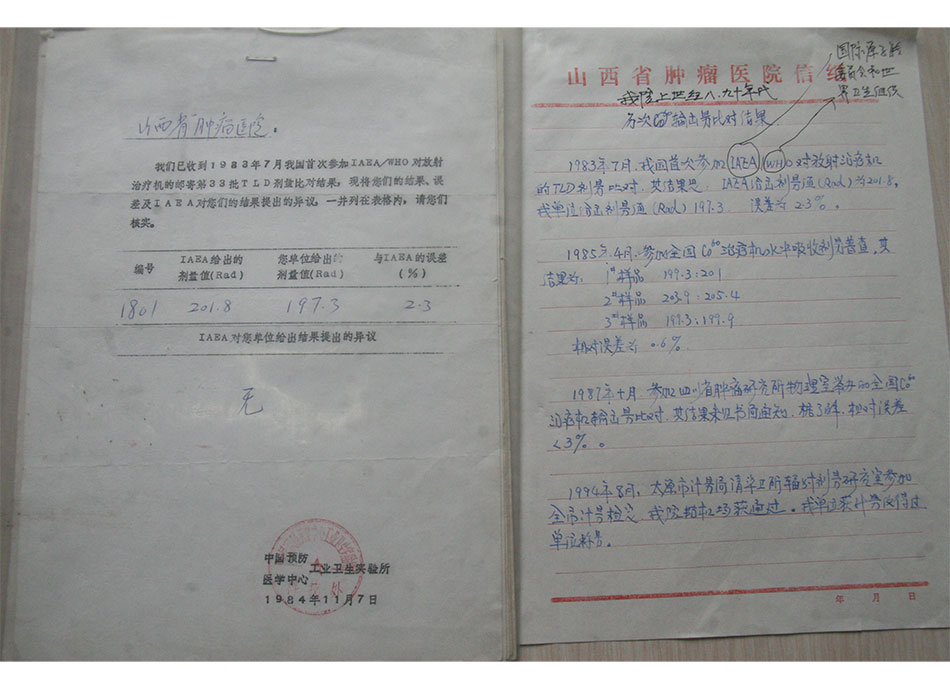 山西省肿瘤医院。
我们已收到1983年7月我国首次参加IAEA/WHO对放射
治疗机的邮寄第33批TLD剂量比对结果，现将您们的结果、误
差及IAEA对您们的结果提出的异议，一并列在表格内，请您们
核实。
编号 IAEA给出的剂量值(Rad) 您单位给出的剂量值(Rad) 与IAEA的误差(%)
1801 201.8 197.3 2.3
IAEA对您单位给出结果提出的异议
无
中国预防
医学中心
工业卫生实验所
1984年11月7日
山西省肿瘤医院信
国际原子能
委员会和世
界卫生组织
我院上世纪八、九十年代
历次Co60输出量比对结果
1983年7月，我国首次参加IAEA/WHO对放射治疗机
的TLD剂量比对，其结果是：IAEA给出剂量值(Rad)为201.8，
我单位给出剂量值(Rad)197.3 误差为2.3%。
1985年4月，参加全国Co60治疗机水中吸收剂量普查，其
结果为： 1#样品 199.3:201
2#样品 203.9:205.4
3#样品 199.3:199.9
相对误差为 0.6%
1987年十月，参加四川省肿瘤研究所物理室举办的全国Co60
治疗机输出量比对，其结果未见书面通知，相对误差
<3%。
1994年8月，太原市计量局请 辐射剂量研究室参加
全市计量检定，我院 获通过。我单位获计量
单位称号。
年 月 日